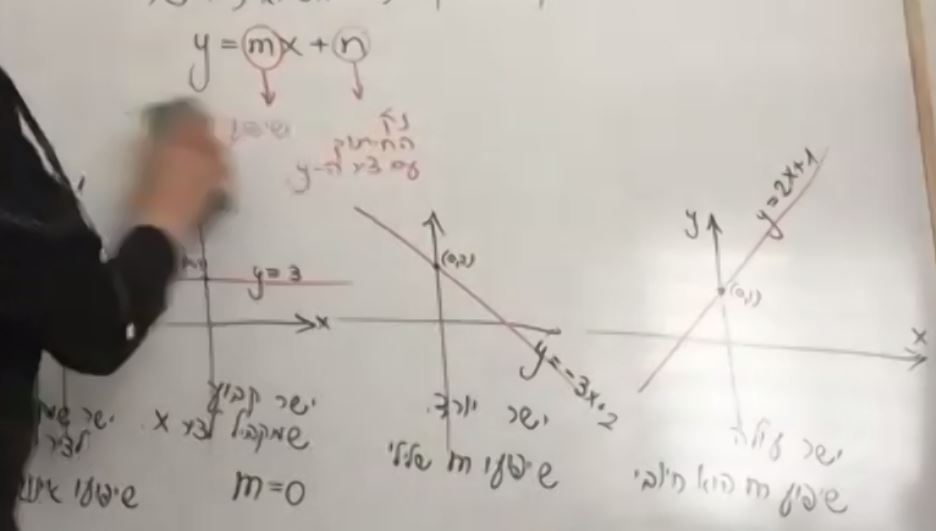 y = mx + n
שיפוע
נק'
החיתוך
עם ציר ה-y
y = 2x+1
y
(0,1)
x
ישר עולה
שיפוע m הוא חיובי
(0,2)
y = -3x+2
ישר יורד
שיפוע m שלילי
y = 3
x
ישר קבוע
שמקביל לציר x
m=0
ישר
לציר
שיפוע